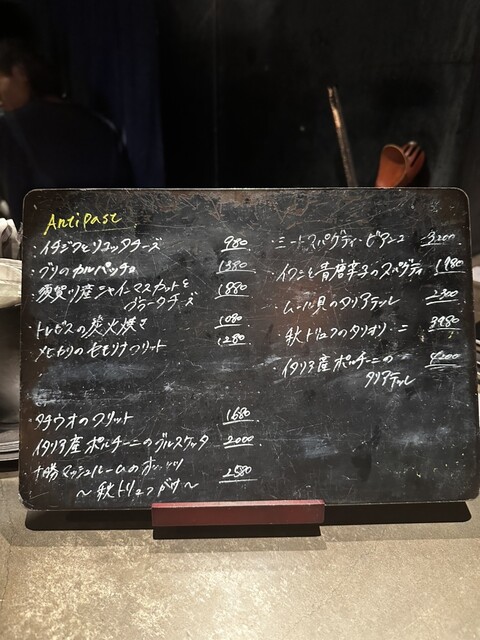 Antipast
・イチジクとリコッタチーズ 980
・ブリのカルパッチョ 1380
須賀川産シャインマスカットと
ブラータチーズ 1880
・トレビスの炭火焼き 1080
・メヒカリのセモリナフリット 1280
・タチウオのフリット 1680
・イタリア産ポルチーニのブルスケッタ 2000
十勝マッシュルームの 2580
〜秋トリュフがけ〜
・ミートスパゲティービアンコ 3200
・イワシと青唐辛子のスパゲティ 1980
・ムール貝のタリアテッレ 2300
・秋トリュフのタリオリーニ 3980
・イタリア産ポルチーニの 4200
タリアテッレ